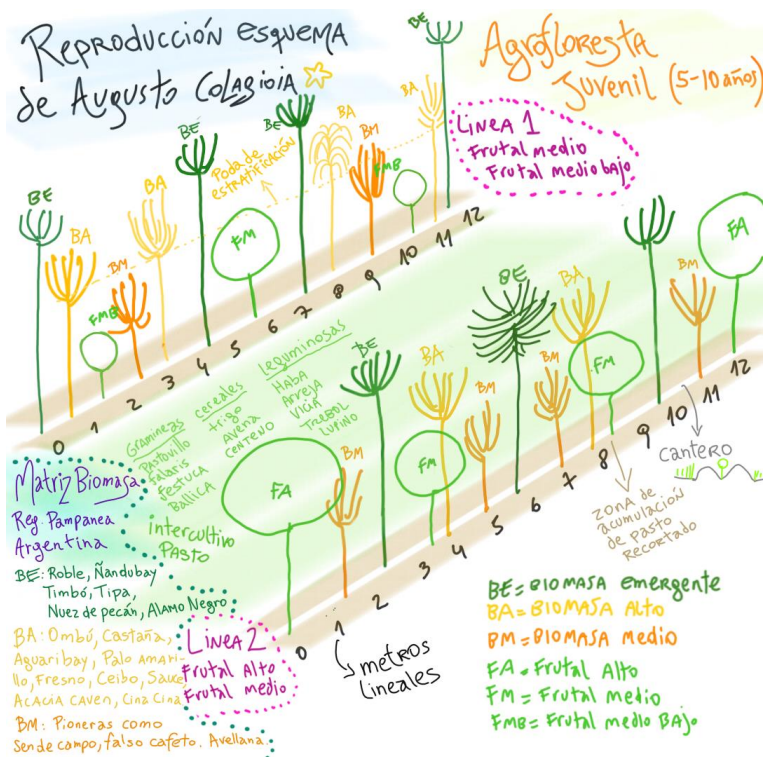 Reproducción esquema
de Augusto Colagioia
Agrofloresta
Juvenil (5-10 años)
Linea 1
Frutal medio
Frutal medio bajo
BE
BA
FMB
BM
BA
BE
Poda de
estratificación
FM
BE
BA
BM
FMB
BA
BE
0
1
2
3
4
5
6
7
8
9
10
11
12
Gramineas
Pastovillo
Falaris
Festuca
Ballica
cereales
trigo
Avena
CENTENO
leguminosas
HABA
Arveja
VICIA
TREBOL
LUPINO
intercultivo
PASTO
FA
BM
BE
FM
BA
BM
BE
BM
BA
FM
BM
FA
0
1
2
3
4
5
6
7
8
9
10
11
12
metros
Lineales
ZONA de
acumulación
de pasto
Recortado
cantero
Matriz Biomasa
Reg. Pampanea
Argentina
BE: Roble, Ñandubay
Timbó, Tipa,
Nuez de pecán, Alamo Negro
BA: Ombú, Castaña,
Aguaribay, Palo Amari-
llo, Fresno, Ceibo, Sauce
Acacia caven, Cina Cina
BM: Pioneras como
Sen de campo, falso cafeto. Avellana.
Linea 2
Frutal Alto
Frutal medio
BE= BIOMASA emergente
BA= BIOMASA Alto
BM= BIOMASA Medio
FA= Frutal Alto
FM= Frutal medio
FMB= Frutal medio BAjo